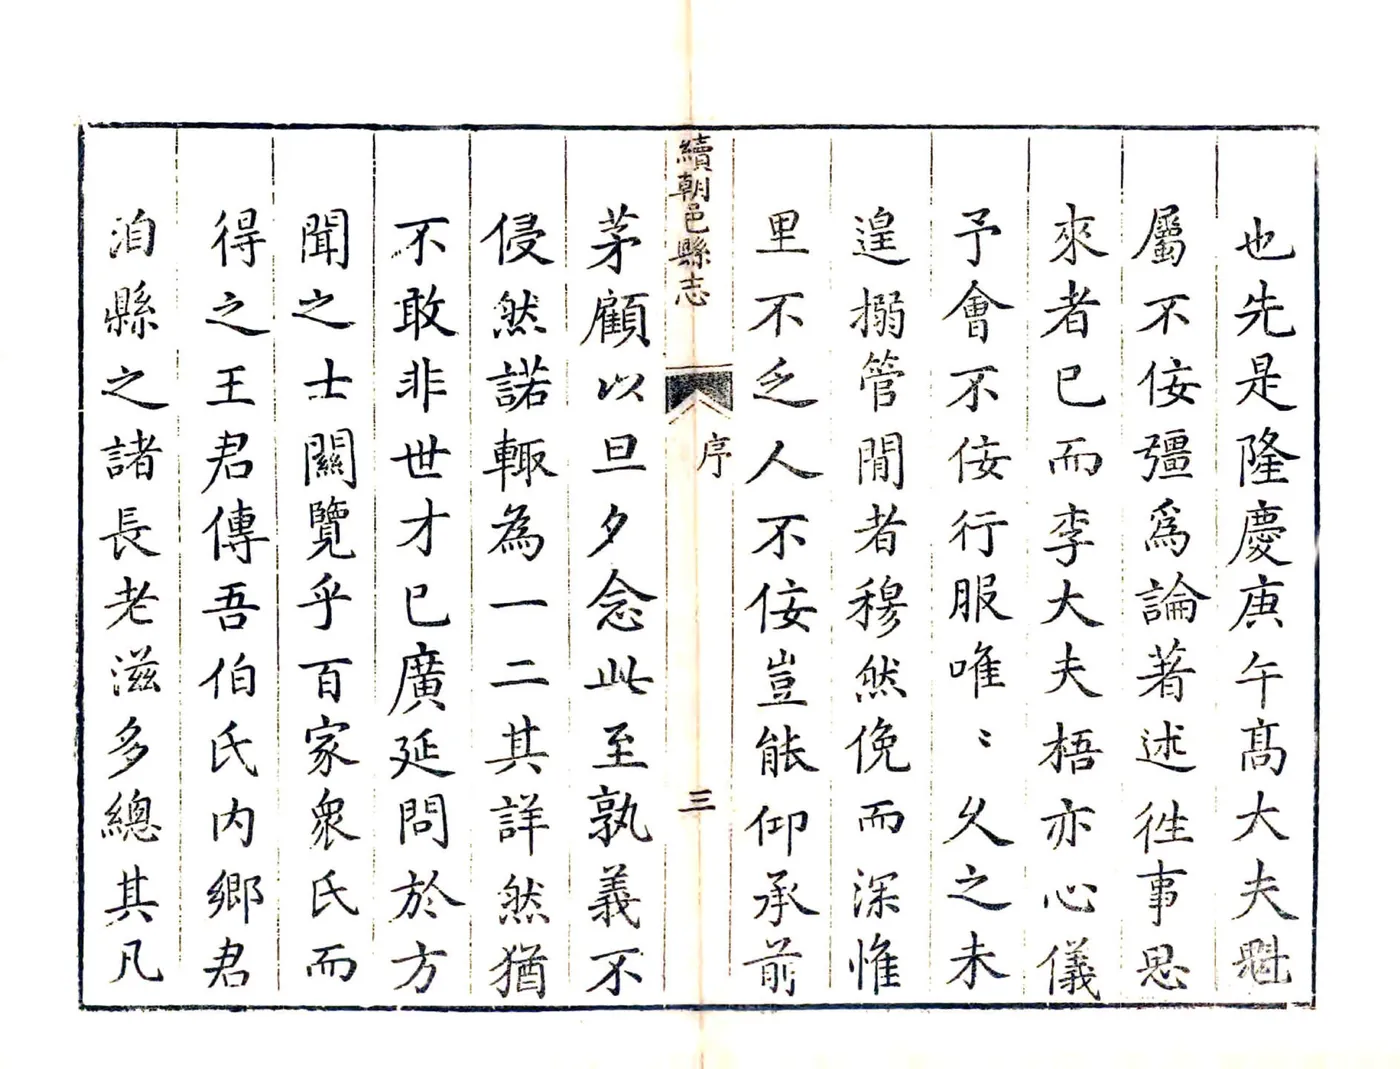 也先是隆慶庚午髙大夫魁
屬不侫彊爲論著述徃事思
來者已而李大夫梧亦心儀
予會不侫行服唯〻久之未
遑搦管閒者穆然俛而深惟
里不乏人不侫豈能仰承前
續朝邑縣志
序
三
茅顧以旦夕念此至孰義不
侵然諾輙為一二其詳然猶
不敢非世才已廣延問於方
聞之士闗覽乎百家衆氏而
得之王君傳吾伯氏内鄉君
洎縣之諸長老滋多總其凡